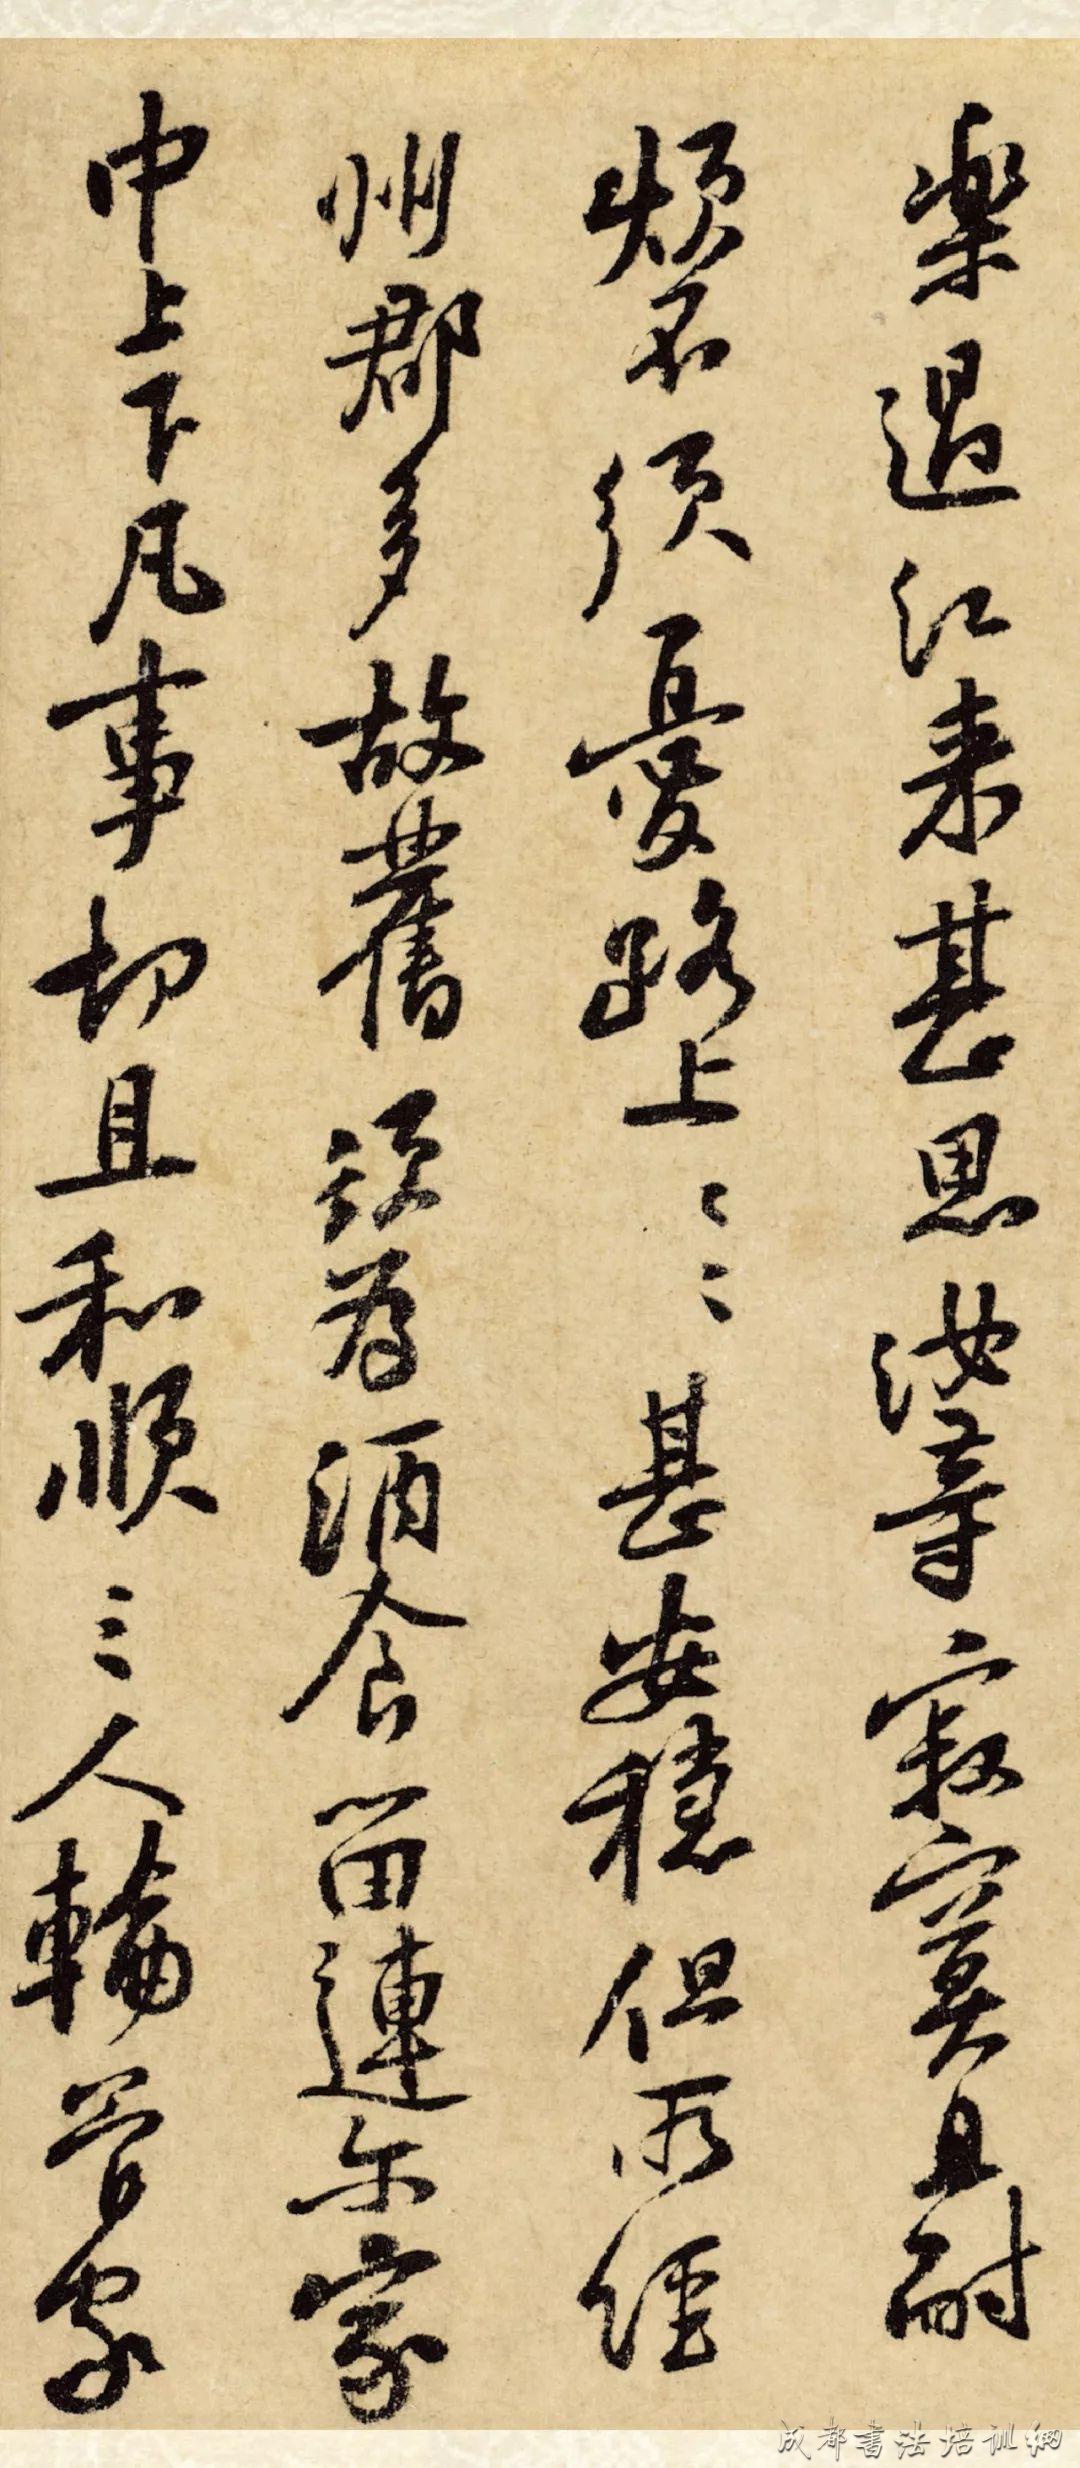 樂過江来甚思汝等寂寞且耐
煩不須憂路上〻〻甚安穩但所經
州郡多故舊須為酒食留連尔家
中上下凡事切且和順三人輪管家
成都書法培训網